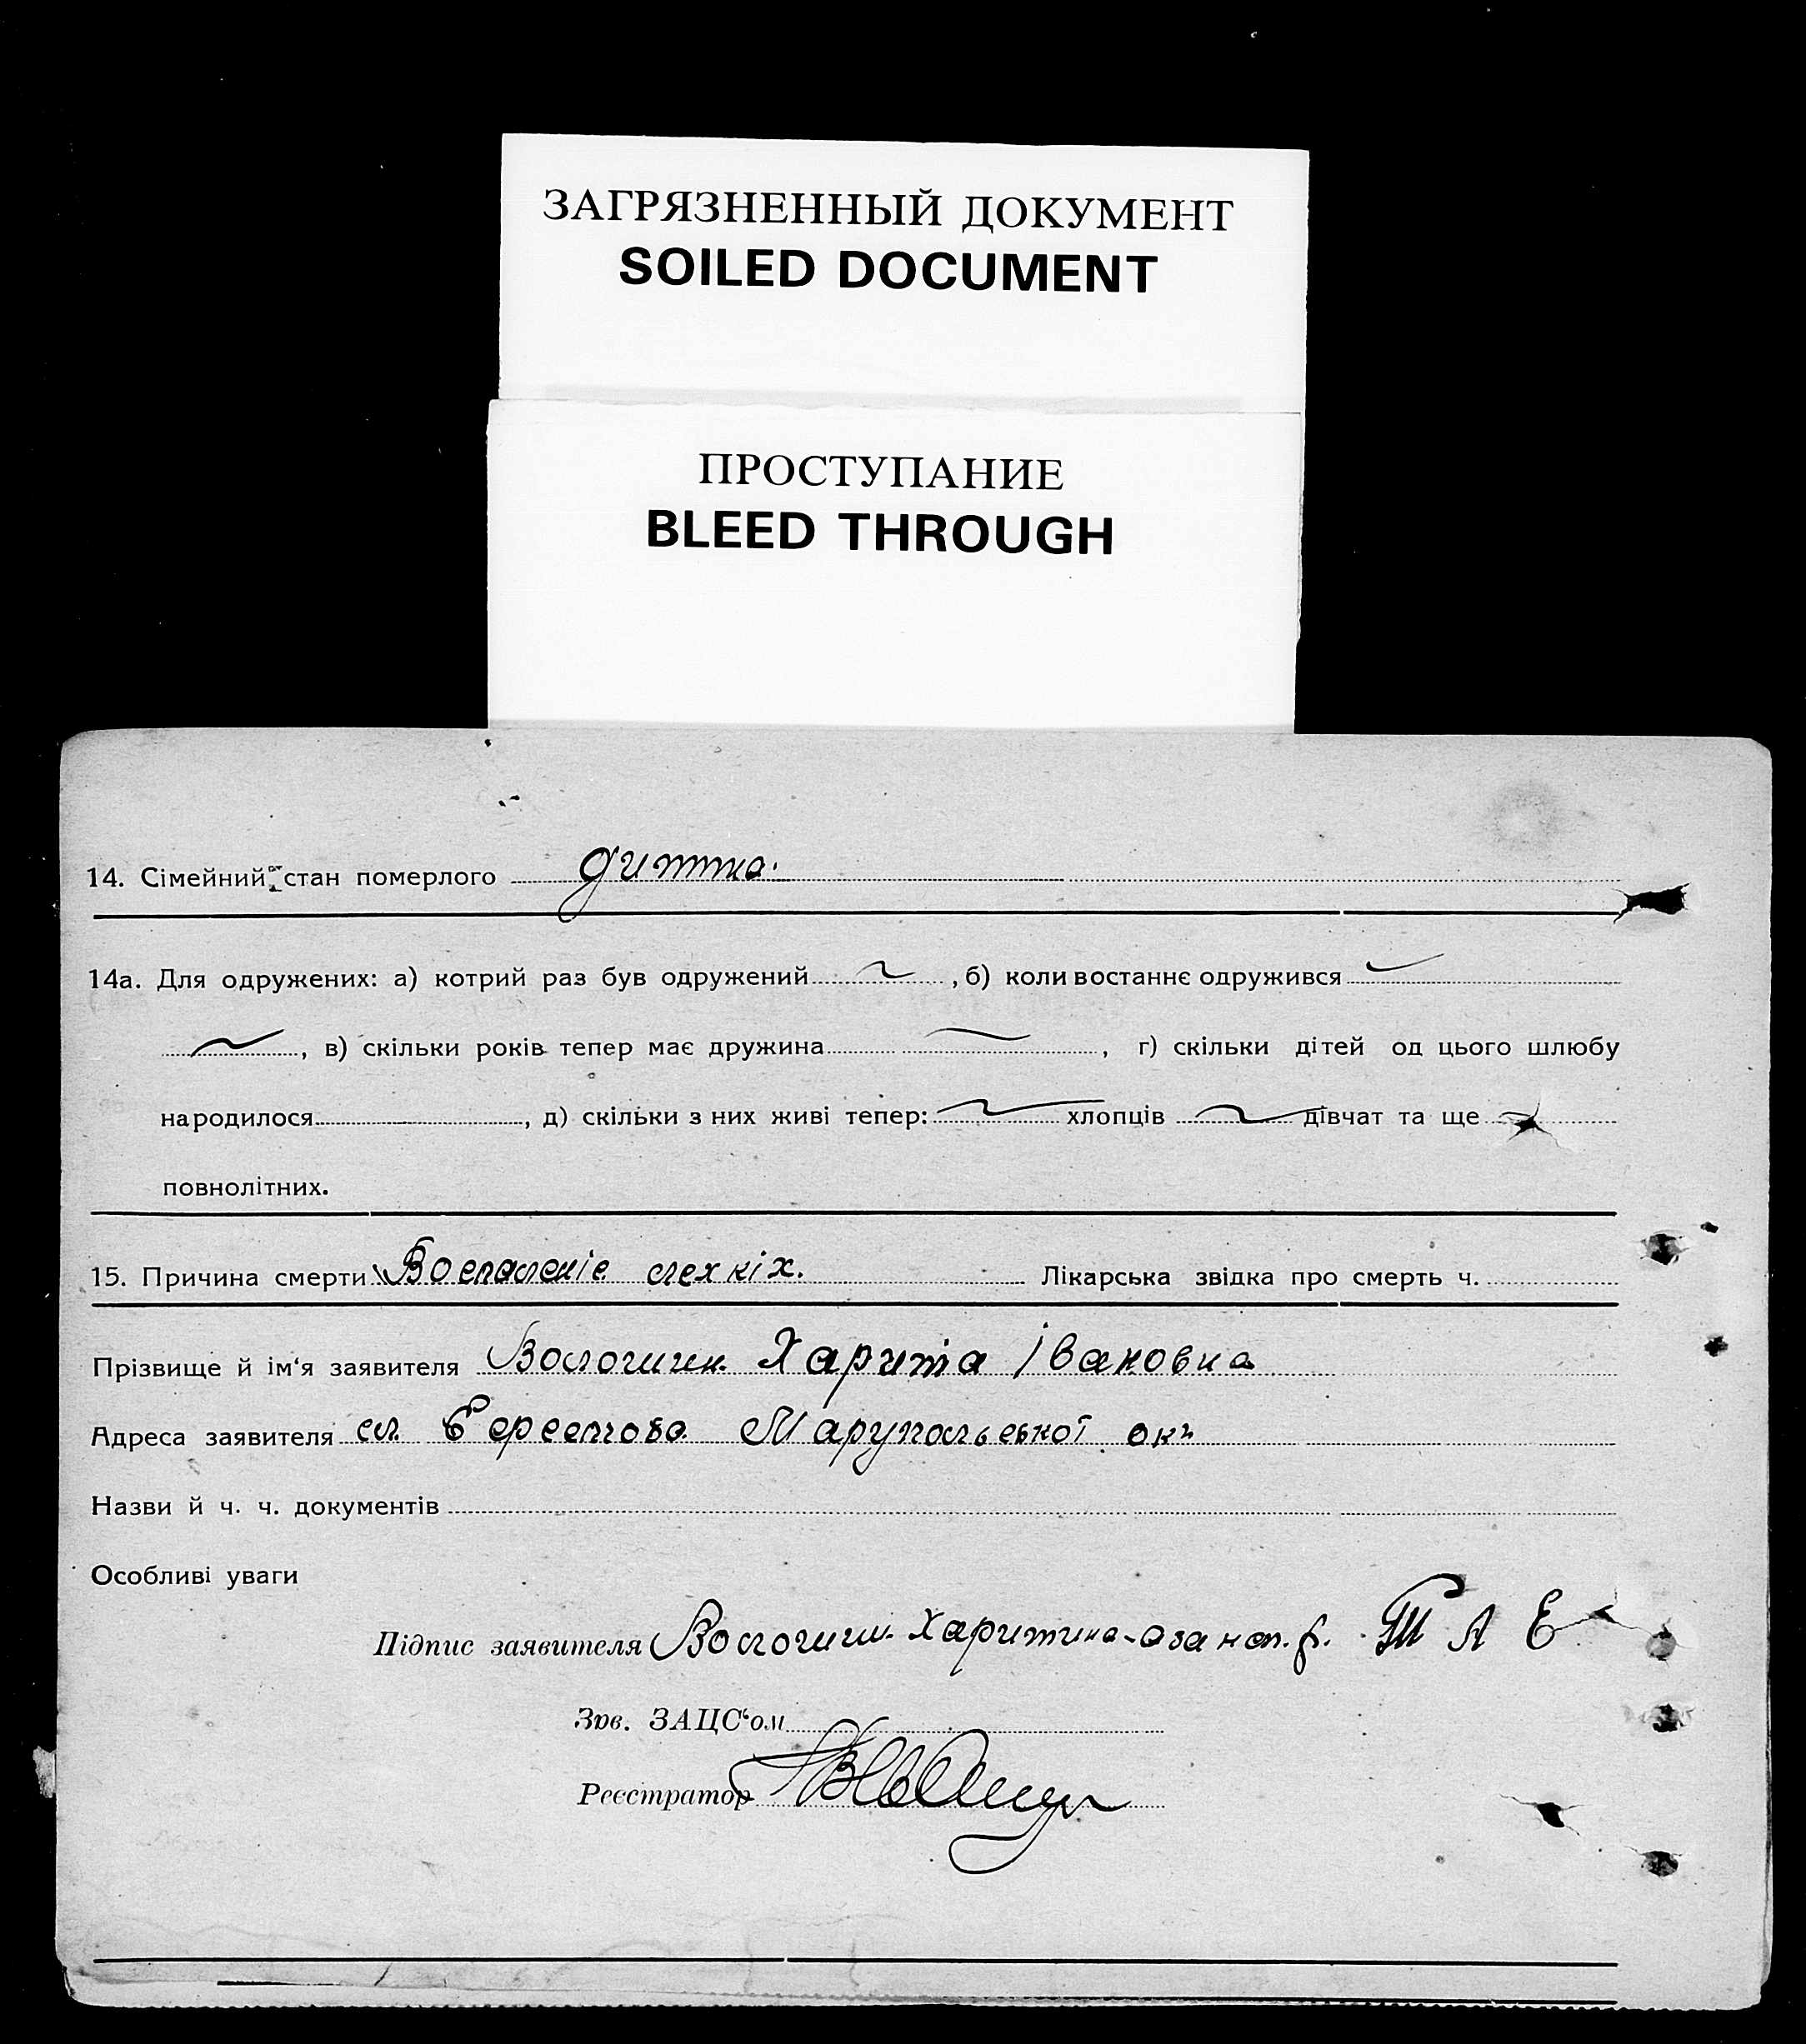 ЗАГРЯЗНЕННЫЙ ДОКУМЕНТ
SOILED DOCUMENT
ПРОСТУПАНИЕ
BLEED THROUGH
14. Сімейний стан померлого
14а. Для одружених: а) котрий раз був одружений , б) коли востаннє одружився
, в) скільки років тепер має дружина , г) скільки дітей од цього шлюбу
народилося , д) скільки з них живі тепер: хлопців дівчат та ще
повнолітних.
15. Причина смерти Воспаленіе лехкіх. Лікарська звідка про смерть ч.
Прізвище й ім‘я заявителя Харита Івановна
Адреса заявителя сл. Берестова Марупольської окр
Назви й ч. ч. документів
Особливі уваги
Підпис заявителя
Зав. ЗАЦС‘ом
Реєстратор